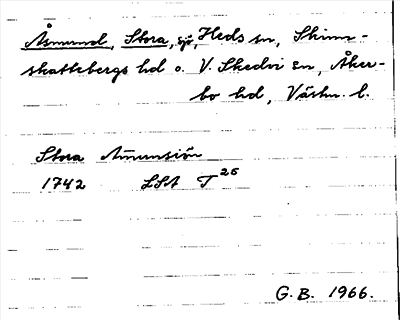 Åsmund, Stora, sjö, Heds sn, Skinn-
skattebergs hd o. V. Skedvi sn, Åker-
bo hd, Västm. l.
Stora Åmunsiön
1742 LSA T 26
G. B. 1966.